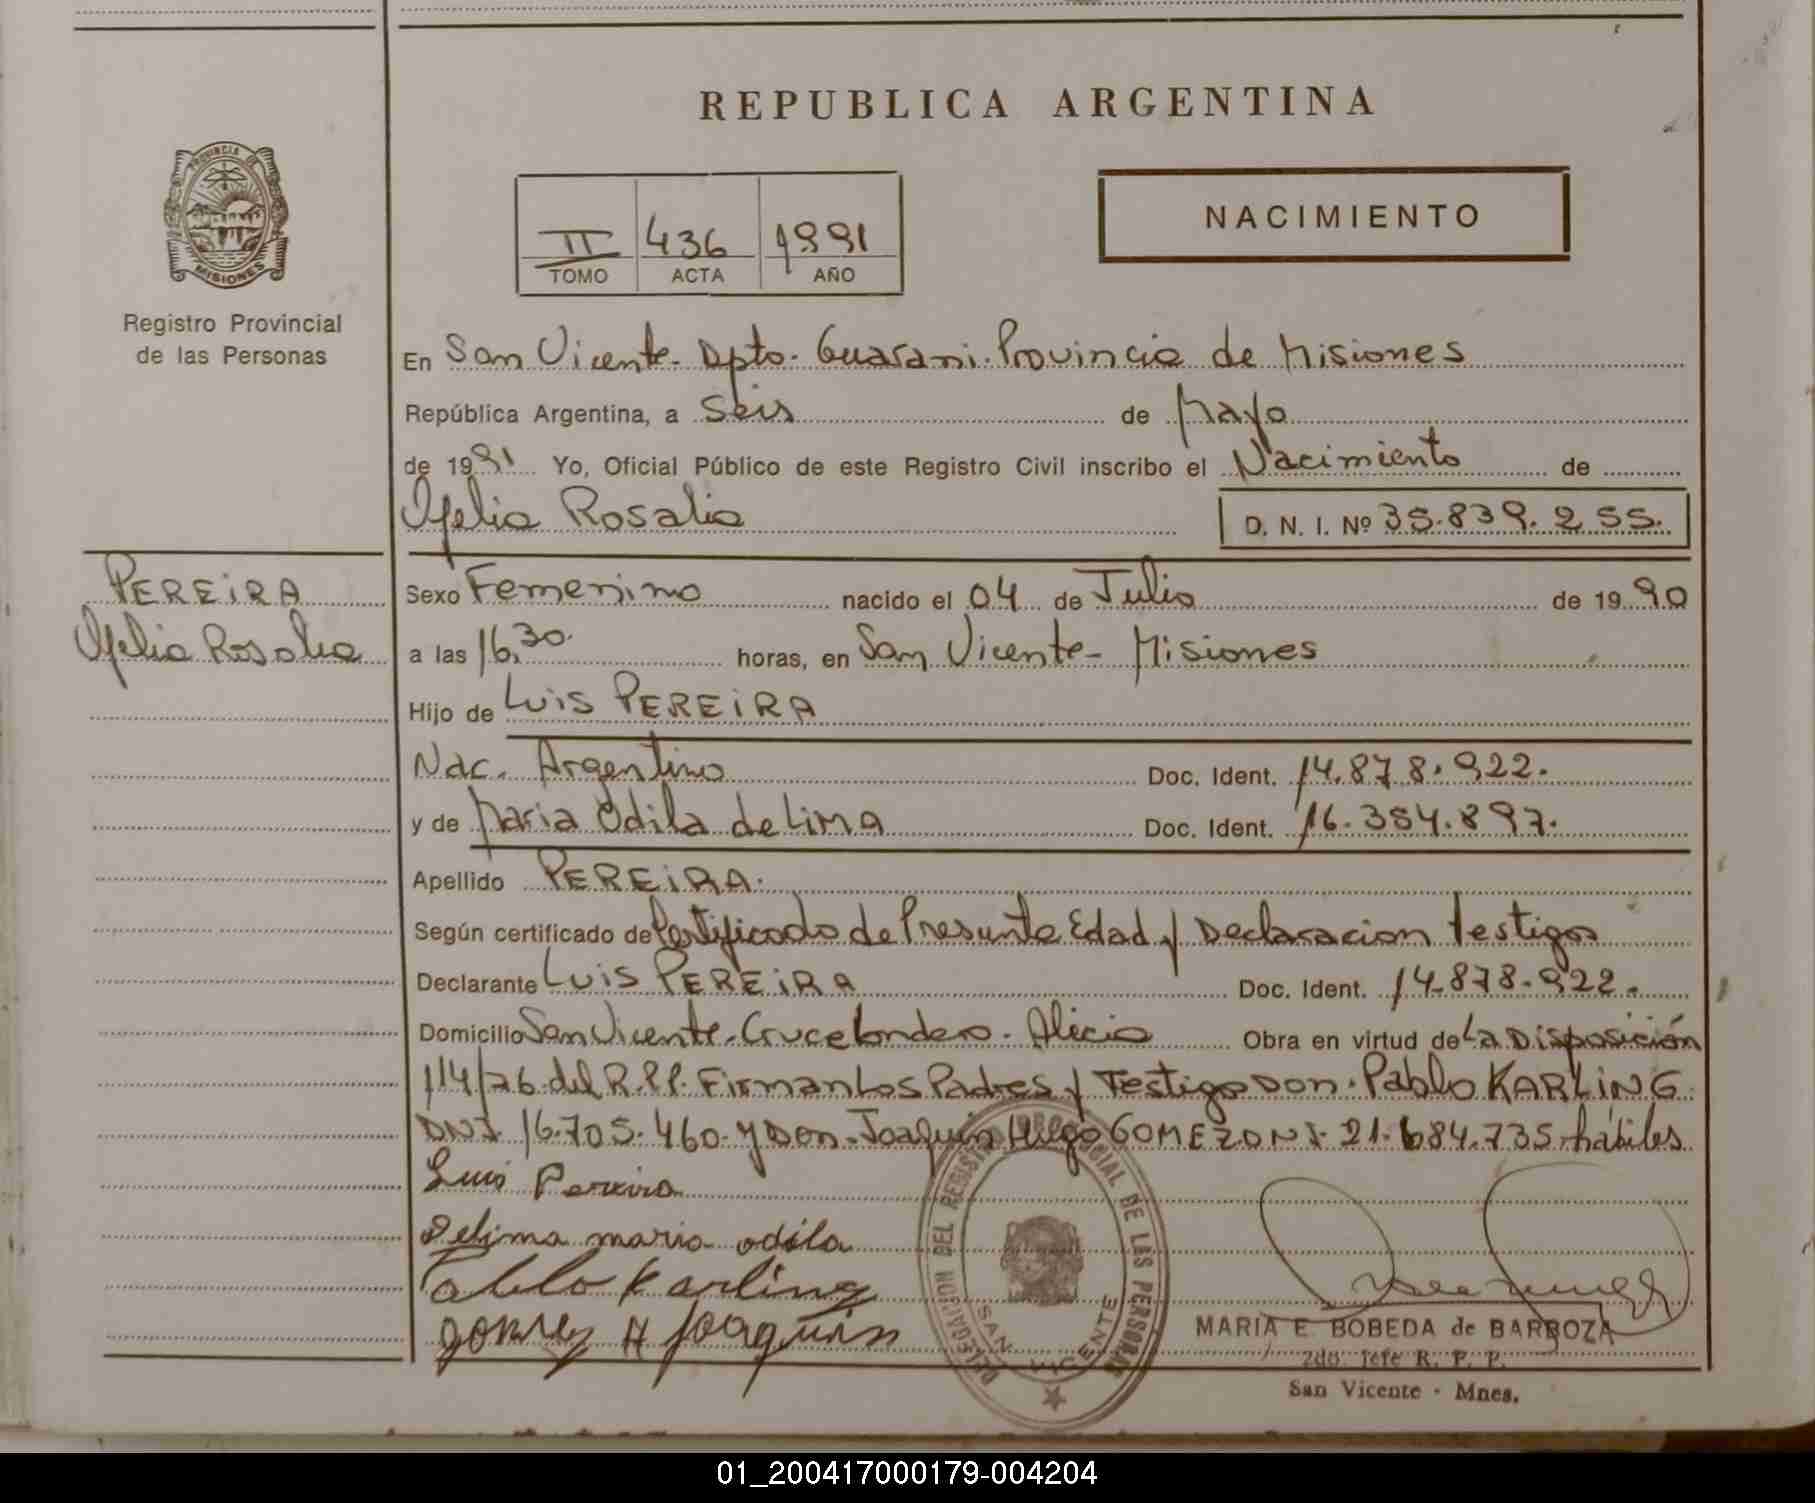 REPUBLICA ARGENTINA
PROVINCIA DE
MISIONES
Registro Provincial
de las Personas
II 436 1991
TOMO ACTA AÑO
NACIMIENTO
En San Vicente - Dpto. Guarani - Provincia de Misiones
República Argentina, a Seis de Mayo
de 1991 Yo, Oficial Público de este Registro Civil inscribo el Nacimiento de
Ofelia Rosalia D. N. I. Nº 35.839.255.
PEREIRA
Ofelia Rosalia
Sexo Femenino nacido el 04 de Julio de 1990
a las 16,30 horas, en San Vicente - Misiones
Hijo de Luis PEREIRA
Nac. Argentino Doc. Ident. 14.878.922.
y de Maria Odila de Lima Doc. Ident. 16.354.897.
Apellido PEREIRA.
Según certificado de Certificado de Presunta Edad y Declaracion testigos
Declarante Luis PEREIRA Doc. Ident. 14.878.922.
Domicilio San Vicente - Cruce Londero - Alicia Obra en virtud de La Disposición
114/76 del R.P.P. Firman Los Padres y Testigo Don. Pablo KARLING
DNI 16.705.460 y Don. Joaquin Hugo GOMEZ DNI 21.684.735 hábiles
Luis Pereira
Delima maria odila
Pablo Karling
gomez H Joaquin
DELEGACION DEL REGISTRO PROVINCIAL DE LAS PERSONAS
SAN VICENTE
MARIA E. BOBEDA de BARBOZA
2do. Jefe R. P. P.
San Vicente - Mnes.
01_200417000179-004204